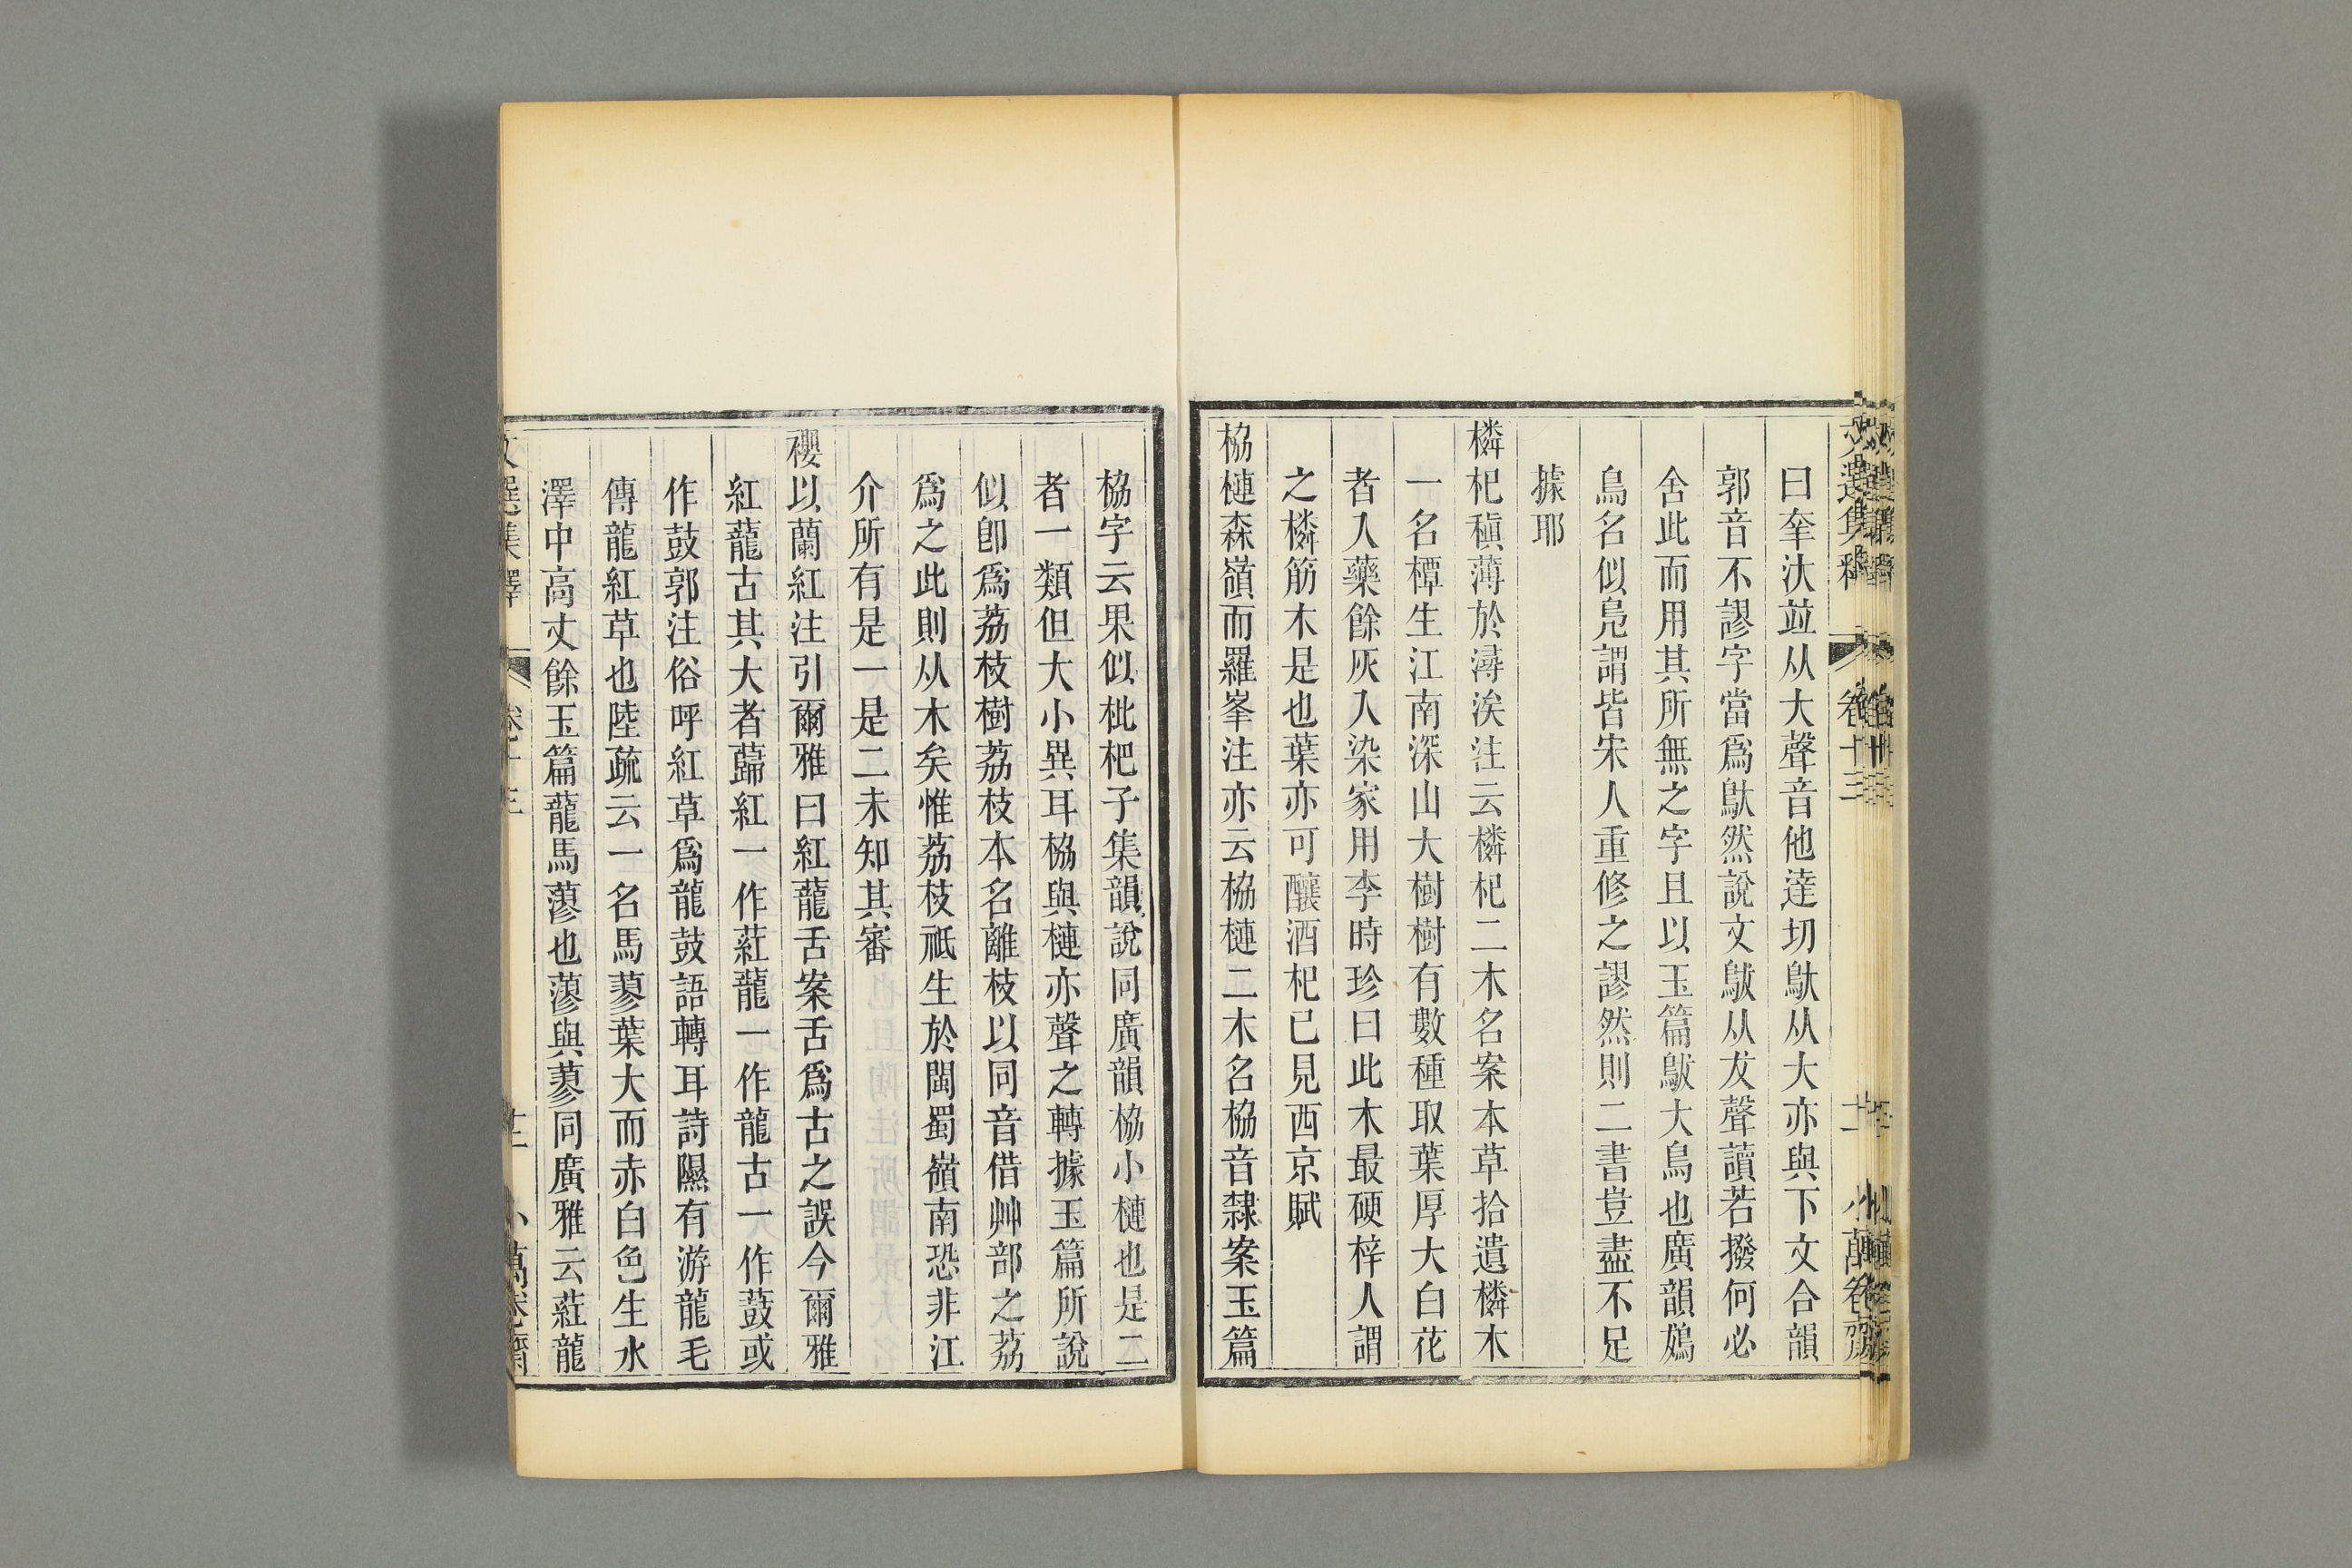 文選集釋 卷十三 十二 小萬卷齋
曰羍汏竝从大聲音他達切䲦从大亦與下文合韻
郭音不謬字當爲䲦然說文鼥从犮聲讀若撥何必
舍此而用其所無之字且以玉篇鼥大鳥也廣韻鴆
鳥名似鳧謂皆宋人重修之謬然則二書豈盡不足
據耶
橉杞稹薄於潯涘注云橉杞二木名案本草拾遺橉木
一名橝生江南深山大樹樹有數種取葉厚大白花
者入藥餘灰入染家用李時珍曰此木最硬梓人謂
之橉筋木是也葉亦可釀酒杞已見西京賦
栛槤森嶺而羅峯注亦云栛槤二木名栛音隸案玉篇
栛字云果似枇杷子集韻說同廣韻栛小槤也是二
者一類但大小異耳栛與槤亦聲之轉據玉篇所說
似卽爲荔枝樹荔枝本名離枝以同音借艸部之荔
爲之此則从木矣惟荔枝祇生於閩蜀嶺南恐非江
介所有是一是二未知其審
䙬以蘭紅注引爾雅曰紅蘢舌案舌爲古之誤今爾雅
紅蘢古其大者蘬紅一作葒蘢一作龍古一作䕷或
作鼓郭注俗呼紅草爲龍鼓語轉耳詩隰有游龍毛
傳龍紅草也陸疏云一名馬蓼葉大而赤白色生水
澤中高丈餘玉篇蘢馬蔘也蔘與蓼同廣雅云葒龍
卷十三 十三